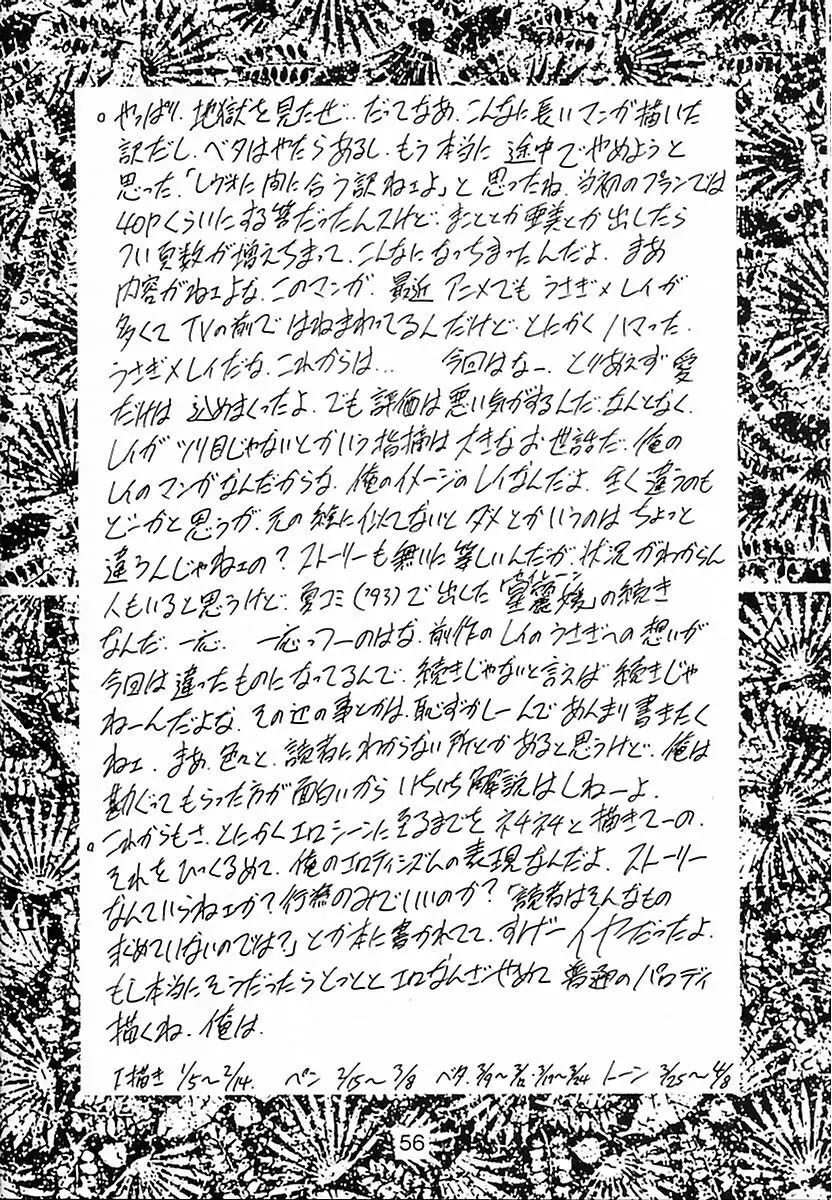 。やっぱり、地獄を見たぜ…だってなあ、こんなに長いマンガ描いた
訳だし、ベタはやたらあるし、もう本当に途中でやめようと
思った。「レヴォに間に合う訳ねェよ」と思ったね。当初のプランでは
40Pくらいにする筈だったんスけど、まこととか亜美とか出したら
つい頁数が増えちまって、こんなになっちまったんだよ。まあ
内容がねェよな、このマンガ。最近アニメでもうさぎ×レイが
多くてTVの前ではねまわってるんだけど、とにかくハマった。
うさぎ×レイだな、これからは… 今回はなー、とりあえず愛
だけは込めまくったよ。でも評価は悪い気がするんだ、なんとなく。
レイがツリ目じゃないとかいう指摘は大きなお世話だ。俺の
レイのマンガなんだからな、俺のイメージのレイなんだよ。全く違うのも
どーかと思うが、元の絵に似てないとダメとかいうのはちょっと
違うんじゃねェの？ストーリーも無いに等しいんだが、状況がわからん
人もいると思うけど、夏コミ('93)で出した「麗媛」の続き
なんだ、一応。一応っつーのはな、前作のレイのうさぎへの想いが
今回は違ったものになってるんで、続きじゃないと言えば続きじゃ
ねーんだよな。その辺の事とかは、恥ずかしーんであんまり書きたく
ねェ。まあ、色々と、読者にわからない所とかあると思うけど、俺は
勘ぐってもらった方が面白いからいちいち解説はしねーよ。
。これからもさ、とにかくエロシーンに至るまでをネチネチと描きてーの。
それをひっくるめて、俺のエロティシズムの表現なんだよ。ストーリー
なんていらねェか？行為のみでいいのか？「読者はそんなもの
求めていないのでは？」とか本に書かれてて、すげーイヤだったよ。
もし本当にそうだったらとっとエロなんざやめて普通のパロディ
描くね、俺は。
下描き 1/5～2/14. ペン 2/15～3/8 ベタ.3/9～3/12・3/17～3/24 トーン 3/25～4/8
56